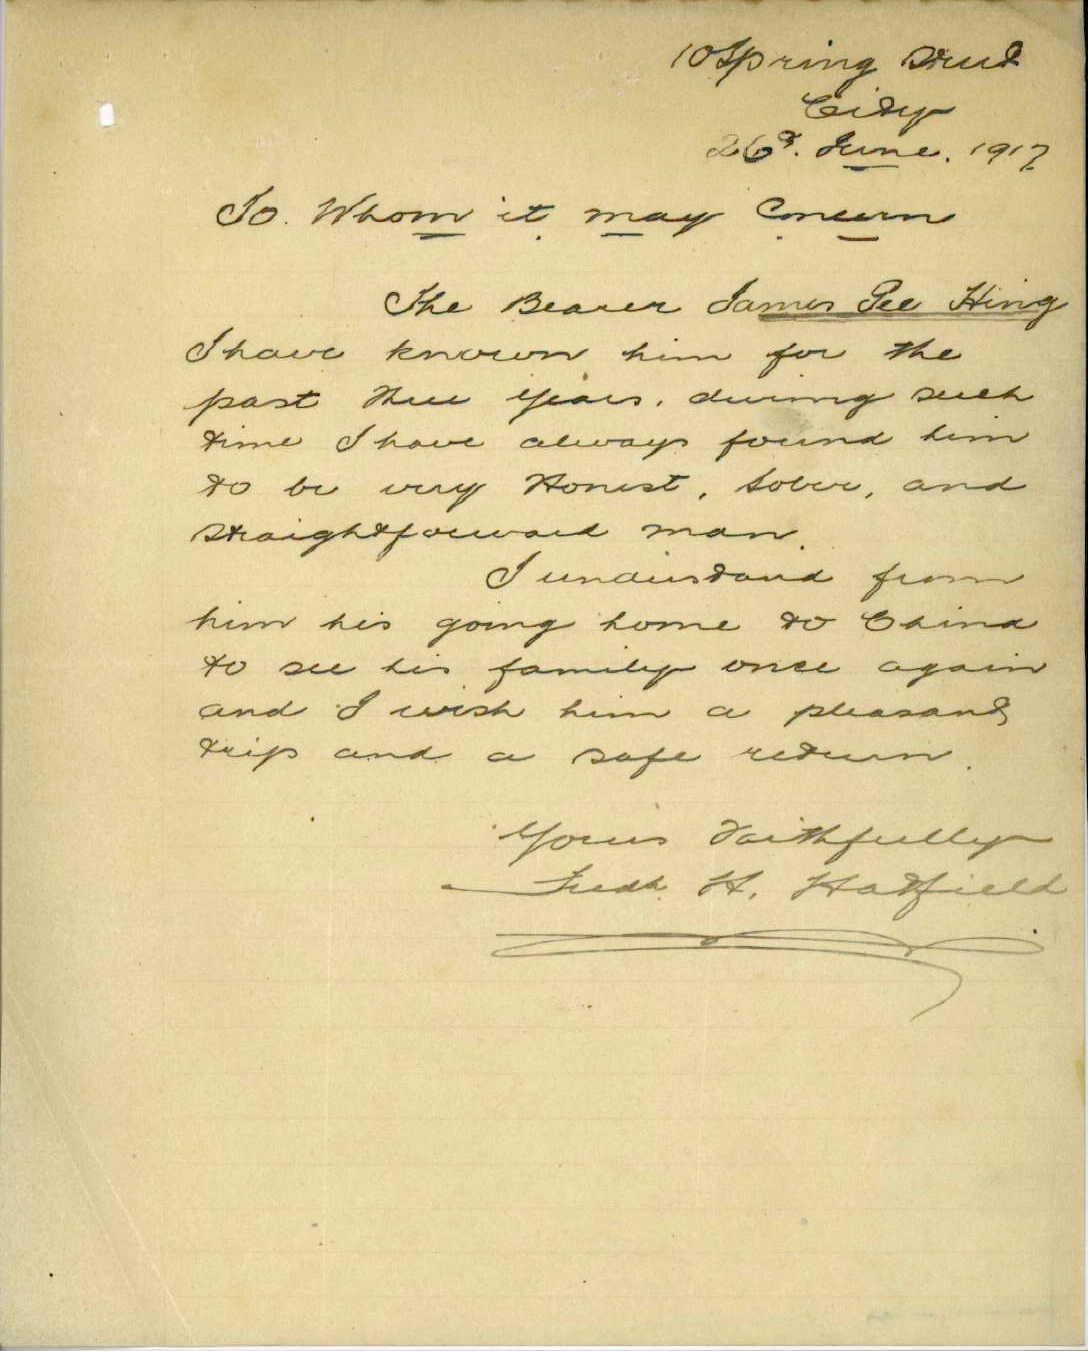 10 Spring Street
City
26th. June. 1917
To. Whom it may Concern
The Bearer James Pee Hing
I have known him for the
past three years, during such
time I have always found him
to be very Honest, Sober, and
straightforward man.
I understand from
him his going home to China
to see his family once again
and I wish him a pleasant
trip and a safe return.
Yours Faithfully
Fredk. H. Hatfield